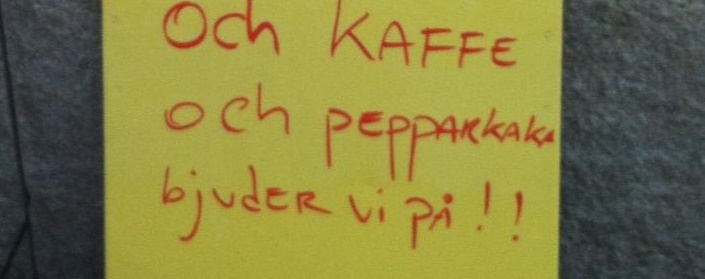 Och KAFFE
och PEPPARKAKA
bjudER vi på!!